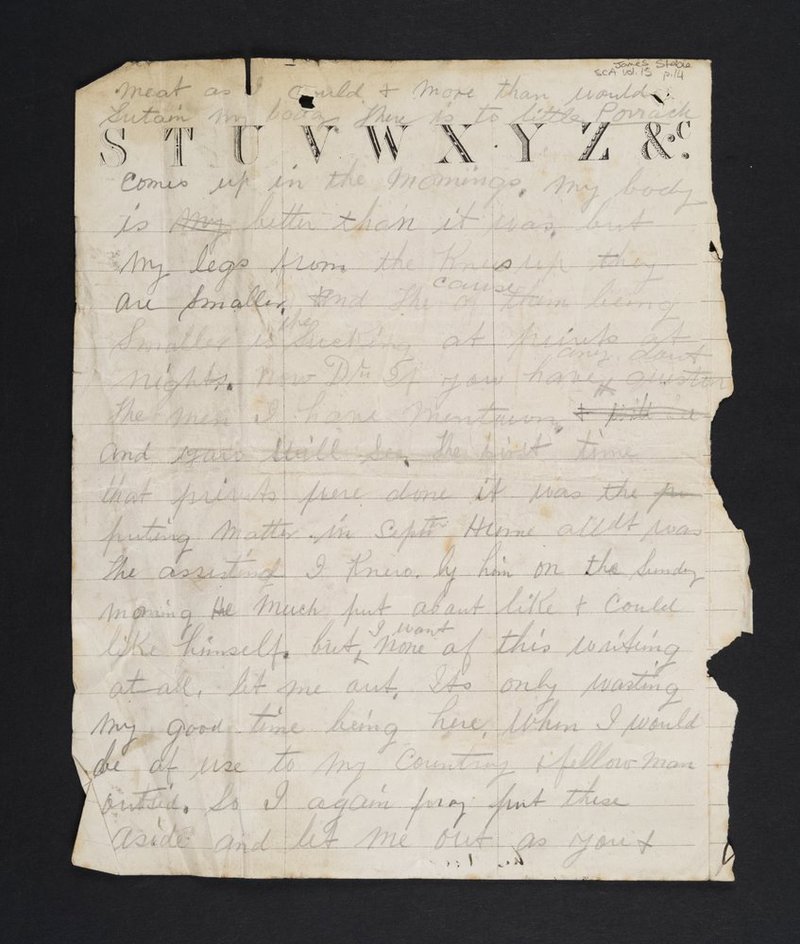 James Stobie
SCA Vol. 15 p.14
meat as I could & more than would
Sutain my body There is to little Porrach
S T U V W X Y Z &c.
comes up in the Mornings. My body
is my better than it was. but
My legs from the Knees up they
are Smaller. And The cause of them being
Smaller is the Sucking at privts at
nights. now Dr. If you have any dout
the men I have Mentiwon
and will See. the first time
that privets were done it was the
puting Matter in Septr Hume was
the I Knew. by him on the Sunday
morning He Much put about like & Could
like himself. but, I want None of this writing
at all. let me out. Its only wasting
My good time being here. When I would
be of use to My Country & fellow Man
outsid. So I again pray put these
aside and let me out as you &